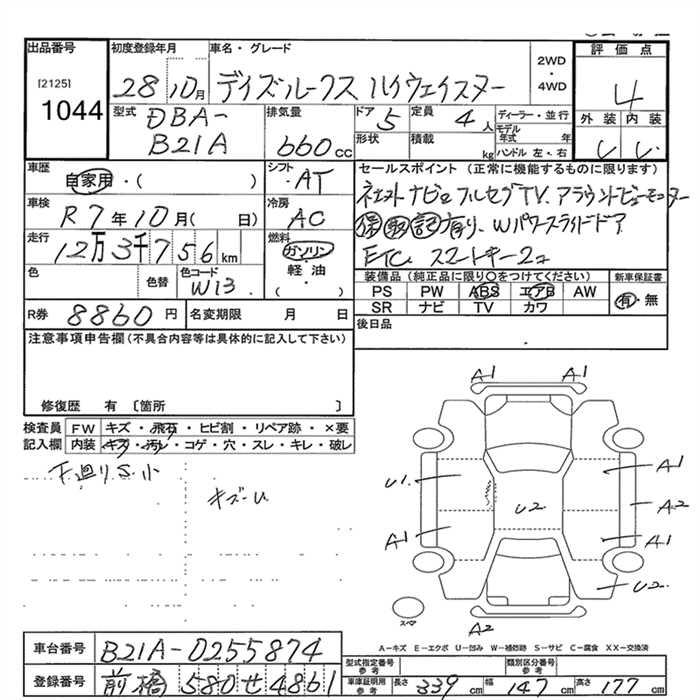 出品番号
[2125]
1044
初度登録年月
28 10月
車名・グレード
デイズルークス ハイウェイスター
2WD
・
4WD
評価点
4
外装 内装
型式
DBA-
B21A
排気量
660cc
ドア 5
定員 4人
形状
積載 kg
ディーラー・並行
モデル年式 年
ハンドル 左・右
車歴
自家用・( )
車検
R7年10月( 日)
走行
12万3千756km
色
色替
色コード
W13
シフト
AT
冷房
AC
燃料
ガソリン
・
軽油
・( )
セールスポイント (正常に機能するものに限ります)
ナビフルセグTV. アラウンドビューモニター
保取記有り、Wパワースライドドア
ETC スマートキー2コ
装備品(純正品に限り○をつけてください)
PS PW ABS エアB AW
SR ナビ TV カワ
新車保証書
有・無
R券 8860円
名変期限 月 日
後日品
注意事項申告欄(不具合内容等は具体的に記入して下さい)
修復歴 有 〔箇所 〕
検査員 FW キズ・飛石・ヒビ割・リペア跡・×要
記入欄 内装 キズ・汚レ・コゲ・穴・スレ・キレ・破レ
下廻りS小
キズ-U
A1 A1
U1 A1
U2 A2
A1 A1
U2
A2
スペア
A-キズ E-エクボ U-凹み W-補修跡 S-サビ C-腐食 XX-交換済
車台番号 B21A-0255874
登録番号 前橋 580せ4861
型式指定番号 参考
類別区分番号 参考
車庫証明用 参考
長さ 339cm
幅 147cm
高さ 177cm